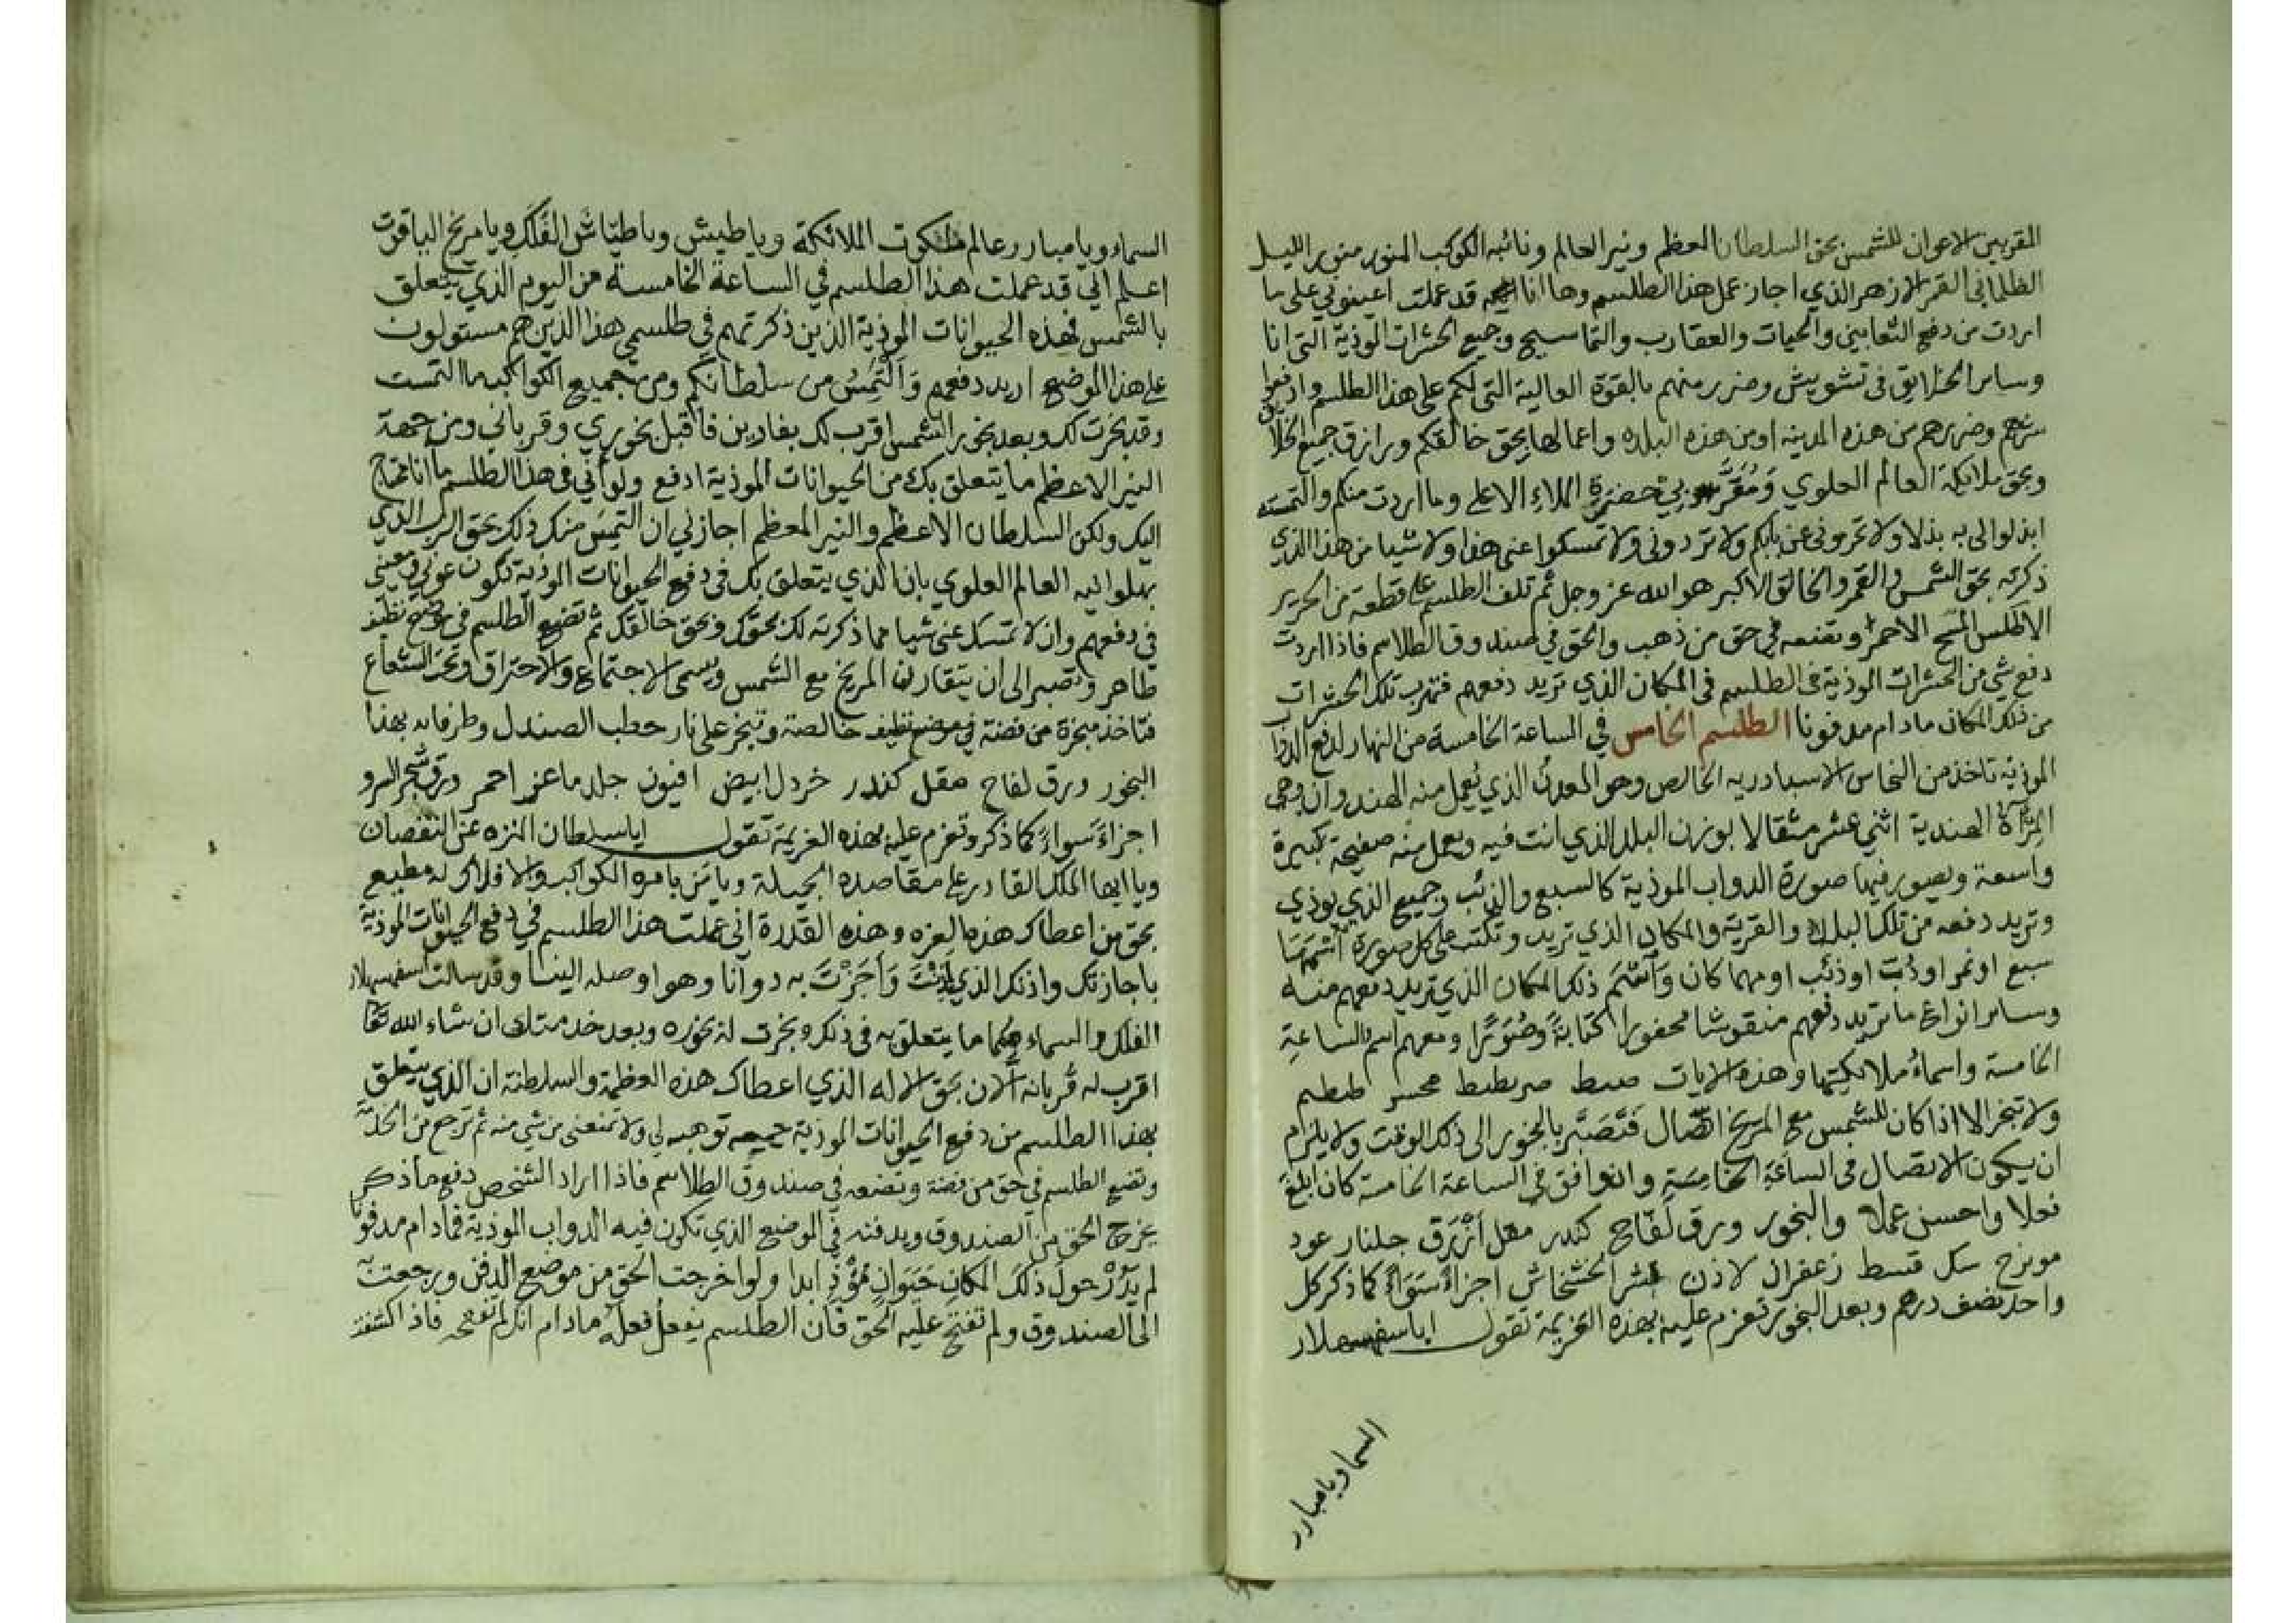 المقربين الاعوان للشمس بحق السلطان المعظم ونير العالم ونائبه الكوكب المنور منور الليل
الظلماني القمر الازهر الذي اجاز عمل هذا الطلسم وها انا قد عملت اعينوني على ما
اردت من دفع الثعابين والحيات والعقارب والتماسيح وجميع الحشرات الموذية التي انا
وساير الخلايق في تشويش وضرر منهم بالقوة العالية التي لكم على هذا الطلسم وادفعوا
شرهم وضررهم من هذه المدينه او من هذه البلده واعمالها بحق خالقكم ورازق جميع الخلايق
وبحق ملايكة العالم العلوي ومقربي حضرة الملاء الاعلى وما اردت منكم والتمسته
ابذلوا لي به بذلا ولا تحرموني عن بابكم ولا تردوني ولا تمسكوا عني هذا ولا شيا من هذا الذي
ذكرته بحق الشمس والقمر والخالق الاكبر هو الله عز وجل ثم تلف الطلسم على قطعة من الحرير
الاطلس الاحمر وتضعه في حق من ذهب والحق في صندوق الطلاسم فاذا اردت
دفع شي من الحشرات الموذية في الطلسم في المكان الذي تريد دفعهم فتهرب تلك الحشرات
من ذلك المكان ما دام مدفونا الطلسم الخامس في الساعة الخامسة من النهار لدفع الدواب
الموذية تاخذ من النحاس الاسبادريه الخالص وهو المعدن الذي يعمل منه الهندوان وهي
المرآة الهندية اثني عشر مثقالا بوزن البلد الذي انت فيه ويعمل منه صفيحة كبيرة
واسعة ويصور فيها صورة الدواب الموذية كالسبع والذئب وجميع الذي يوذي
وتريد دفعه من تلك البلاد والقرية والمكان الذي تريد وتكتب على كل صورة اسمها
سبع او نمر او دب او ذئب او مهما كان واسم ذلك المكان الذي تريد دفعهم منه
وساير انواع ما تريد دفعهم منقوشا محفورا كتابة وصورا ومعهم اسم الساعة
الخامسة واسماء ملائكتها وهذه الايات
ولا تبخر الا اذا كان للشمس مع المريخ اتصال فتصبر بالبخور الى ذلك الوقت ولا يلزم
ان يكون الاتصال في الساعة الخامسة وان وافق في الساعة الخامسة كان ابلغ
فعلا واحسن عملا والبخور ورق لفاح كندر مقل ازرق جلنار عود
قسط زعفران لاذن قشر الخشخاش اجزاء سواء كما ذكر كل
واحد نصف درهم وبعد البخور تعزم عليه بهذه العزيمة تقول ايا سفهسلار
السما ويا مبارر
السماء ويا مبارر عالم ملكوت الملائكة ويا طيش ويا طياش الفلك ويا مريخ الياقوت
اعلم اني قد عملت هذا الطلسم في الساعة الخامسة من اليوم الذي يتعلق
بالشمس لهذه الحيوانات الموذية الذين ذكرتهم في طلسمي هذا الذين هم مستولون
على هذا الموضع اريد دفعهم والتمس من سلطانكم ومن جميع الكواكب ما التمست
وقد بخرت لك وبعد بخور الشمس اقرب لك فاقبل بخوري وقرباني ومن جهة
النير الاعظم ما يتعلق بك من الحيوانات الموذية ادفع ولو اني في هذا الطلسم ما انا محتاج
اليك ولكن السلطان الاعظم والنير المعظم اجازني ان التمس منك ذلك بحق الرب الذي
العالم العلوي بان الذي يتعلق بك في دفع الحيوانات الموذية تكون عوني ومعيني
في دفعهم وان لا تمسك عني شيا مما ذكرته لك بحقك وبحق خالقك ثم تضع الطلسم في موضع نظيف
طاهر وتصبر الى ان يتقارن المريخ مع الشمس ويسمى الاجتماع والاحتراق وتحت الشعاع
فتاخذ مبخرة من فضة خالصة وتبخر على نار حطب الصندل بهذا
البخور ورق لفاح مقل كندر خردل ابيض افيون جلد ماعز احمر ورق شجر السرو
اجزاء سواء كما ذكر وتعزم عليه بهذه العزيمة تقول ايا سلطان المنزه عن النقصان
ويا ايها الملك القادر على مقاصده الجميلة ويا من بامره الكواكب والافلاك له مطيع
بحق من اعطاك هذه العزه وهذه القدرة اني عملت هذا الطلسم في دفع الحيوانات الموذية
باجازتك واذنك الذي اذنت واجزت به وهو اوصله الينا وقد سالت اسفهسلار
الفلك والسماء ما يتعلق به في ذلك وبخرت له بخوره وبعد خدمتك ان شاء الله تعا
اقرب له قربانه الان بحق الاله الذي اعطاك هذه العظمة والسلطنة ان الذي يتعلق
بهذا الطلسم من دفع الحيوانات الموذية جميعه توهبه لي ولا تمنعني من شي منه ثم ترجع من
وتضع الطلسم في حق من فضة وتضعه في صندوق الطلاسم فاذا اراد الشخص دفع ما ذكر
يخرج الحق من الصندوق ويدفنه في الموضع الذي تكون فيه الدواب الموذية فما دام مدفونا
لم يدر حول ذلك المكان حيوان موذ ابدا ولو اخرجت الحق من موضع الدفن ورجعت به
الى الصندوق ولم تفتح عليه الحق فان الطلسم يفعل فعله ما دام انك لم تفتحه فاذا كشفته